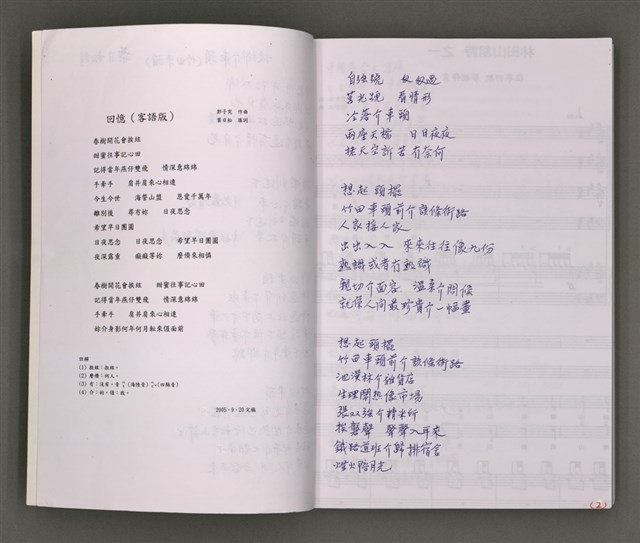 回憶（客語版）
郭子究　作曲
葉日松　填詞
春樹開花會摎結
甜蜜往事記心田
記得當年燕仔雙飛　情深意綿綿
手牽手　肩并肩來心相連
今生今世　海誓山盟　恩愛千萬年
離別後　尋冇妳　日夜思念
希望早日團圓
日夜思念　日夜思念　希望早日團圓
夜深露重　癡癡等妳　麼儕來相憐
春樹開花會摎結　甜蜜往事記心田
記得當年燕仔雙飛　情深意綿綿
手牽手　肩并肩來心相連
妳介身影何年何月紅來𠊎面前
註釋
(2) 麼儕：何人。
(4) 介：的。𠊎：我。
2005・9・28完稿
自強號　奴奴過
莒光號　看情形
冷落介車頭
兩座天橋　日日夜夜
挂天空訴苦冇奈何
想起頭擺
竹田車頭前介該條街路
人家接人家
出出入入　來來往往像九份
熟識或者冇熟識
親切介面容　溫馨介問候
就係人間最珍貴介一幅畫
想起頭擺
竹田車頭前介該條街路
池漢林介雜貨店
生理鬧熱像市場
張双強介精米所
挨礱聲　聲聲入耳來
鐵路道班介歸排宿舍
燈火陪月光
(2)